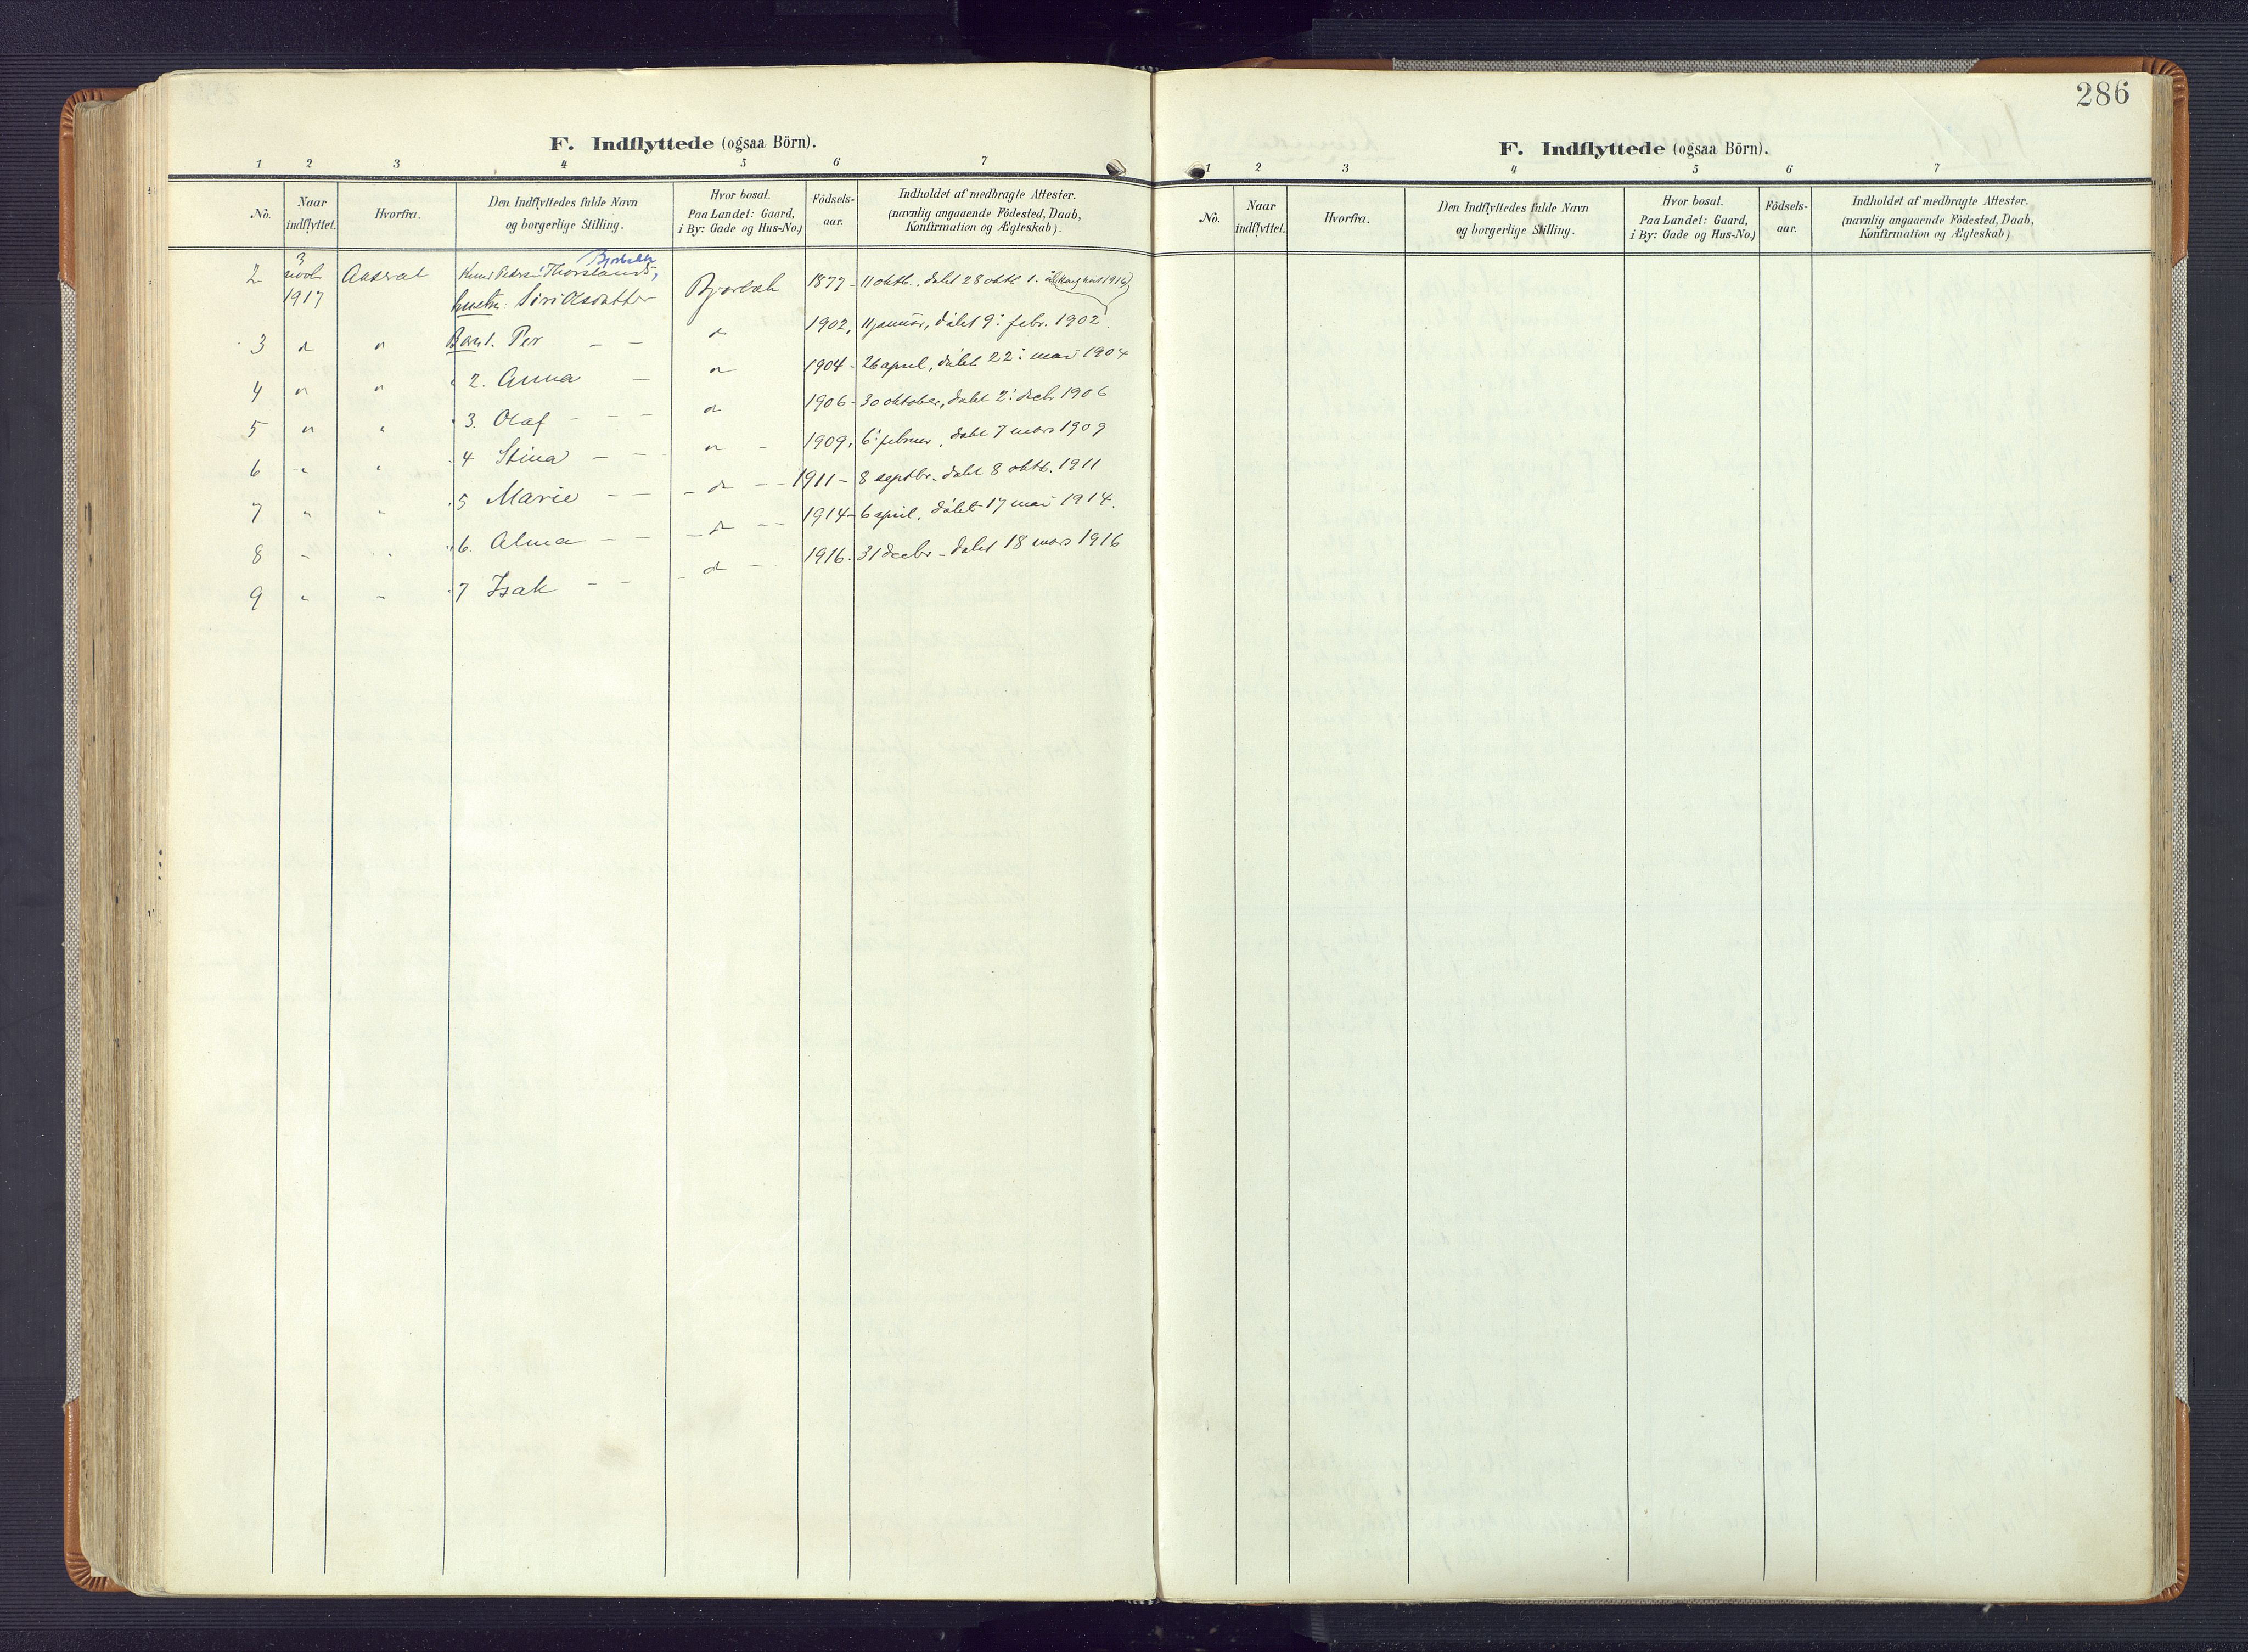 286
F. Indflyttede (ogsaa Börn).
1 2 3 4 5 6 7
No. Naar indflyttet. Hvorfra. Den Indflyttedes fulde Navn og borgerlige Stilling. Hvor bosat. Paa Landet: Gaard, i By: Gade og Hus-No.) Födsels-aar. Indholdet af medbragte Attester. (navnlig angaaende Födested, Daab, Konfirmation og Ægteskab).
Bjorbekk
2 3 novbr Aaseral Knut Pedersen Thorsland,
1917 hustru Siri Olsdatter Bjorbek 1877 - 11 oktb., døbt 28 oktb 1.
3 " " Barn 1. Per — — " 1902, 11 januar, døbt 9: febr. 1902.
4 " " 2. Anna — " 1904 - 26 april, døbt 22: mai 1904
5 " " 3. Olaf - - — " 1906 - 30 oktober, døbt 2: decbr 1906
6 " " 4 Stina — — " - 1909, 6: februar, døbt 7 mars 1909
7 " " 5 Marie — — " - - 1911 - 8 septbr. døbt 8 oktb. 1911
8 " " 6. Alma — — " - - 1914 - 6 april, døbt 17 mai 1914.
9 " " 7 Isak — — " - 1916. 31 decbr - døbt 18 mars 1916
F. Indflyttede (ogsaa Börn).
1 2 3 4 5 6 7
No. Naar indflyttet. Hvorfra. Den Indflyttedes fulde Navn og borgerlige Stilling. Hvor bosat. Paa Landet: Gaard, i By: Gade og Hus-No.) Födsels-aar. Indholdet af medbragte Attester. (navnlig angaaende Födested, Daab, Konfirmation og Ægteskab)